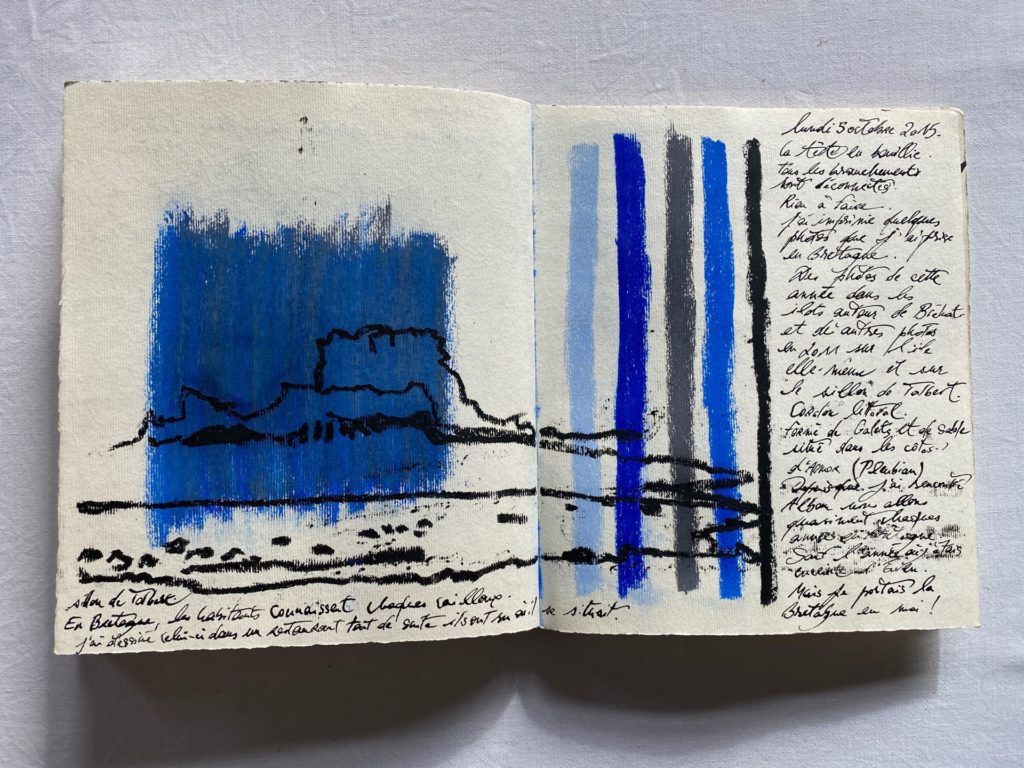 sillon de Talbert
En Bretagne, les habitants connaissent chaque caillou.
j'ai dessiné celui-ci dans un restaurant tout de suite ils ont su où il se situait.
lundi 5 octobre 2015.
la tête en bouillie.
tous les branchements
sont déconnectés.
Rien à faire.
J'ai imprimé quelques
photos que j'ai prises
en Bretagne.
Des photos de cette
année dans les
îlots autour de Bréhat
et d'autres photos
en 2011 sur l'île
elle-même et sur
le sillon de Talbert.
Cordon littoral
formé de Galets et de Sable
situé dans les côtes
d'Armor (Pleubian)
Depuis que j'ai rencontré
Alban nous allons
quasiment chaque
année en Bretagne
Sauf l'année où j'étais
enceinte
Mais je portais la
Bretagne en moi !